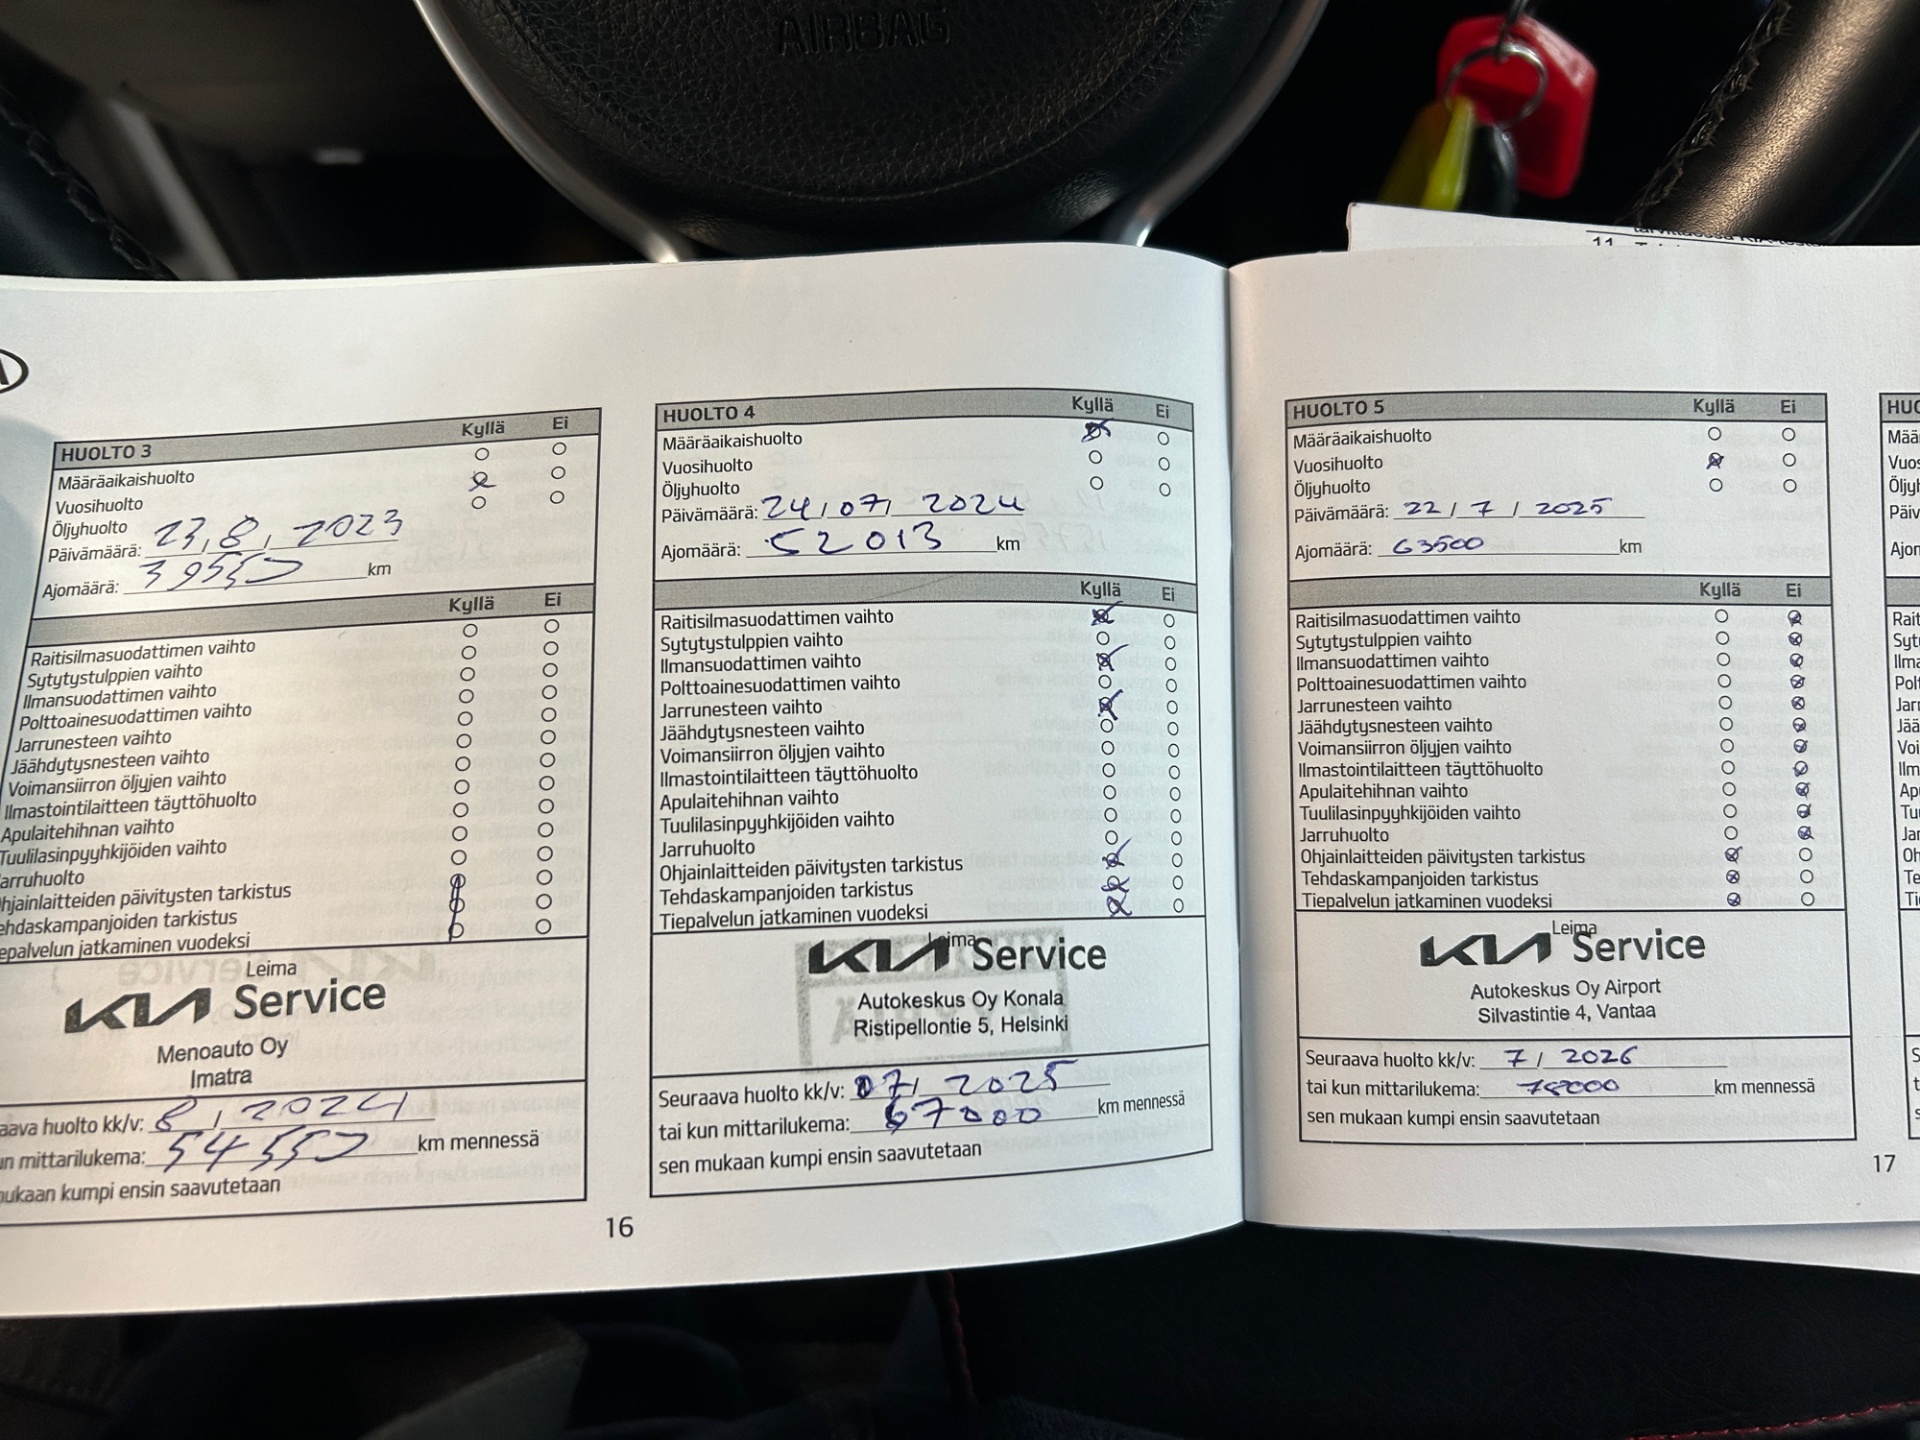 AIRBAG
11
HUOLTO 3 Kyllä Ei
Määräaikaishuolto
Vuosihuolto
Öljyhuolto
Päivämäärä: 23, 8, 2023
Ajomäärä: 39550 km
Kyllä Ei
Raitisilmasuodattimen vaihto
Sytytystulppien vaihto
Ilmansuodattimen vaihto
Polttoainesuodattimen vaihto
Jarrunesteen vaihto
Jäähdytysnesteen vaihto
Voimansiirron öljyjen vaihto
Ilmastointilaitteen täyttöhuolto
Apulaitehihnan vaihto
Tuulilasinpyyhkijöiden vaihto
arruhuolto
hjainlaitteiden päivitysten tarkistus
ehdaskampanjoiden tarkistus
epalvelun jatkaminen vuodeksi
Leima
KIA Service
Menoauto Oy
Imatra
aava huolto kk/v: 8 / 2024
un mittarilukema: 54550 km mennessä
mukaan kumpi ensin saavutetaan
16
HUOLTO 4 Kyllä Ei
Määräaikaishuolto
Vuosihuolto
Öljyhuolto
Päivämäärä: 24 / 07 / 2024
Ajomäärä: 52013 km
Kyllä Ei
Raitisilmasuodattimen vaihto
Sytytystulppien vaihto
Ilmansuodattimen vaihto
Polttoainesuodattimen vaihto
Jarrunesteen vaihto
Jäähdytysnesteen vaihto
Voimansiirron öljyjen vaihto
Ilmastointilaitteen täyttöhuolto
Apulaitehihnan vaihto
Tuulilasinpyyhkijöiden vaihto
Jarruhuolto
Ohjainlaitteiden päivitysten tarkistus
Tehdaskampanjoiden tarkistus
Tiepalvelun jatkaminen vuodeksi
Leima
KIA Service
Autokeskus Oy Konala
Ristipellontie 5, Helsinki
Seuraava huolto kk/v: 07 / 2025
tai kun mittarilukema: 67000 km mennessä
sen mukaan kumpi ensin saavutetaan
HUOLTO 5 Kyllä Ei
Määräaikaishuolto
Vuosihuolto
Öljyhuolto
Päivämäärä: 22 / 7 / 2025
Ajomäärä: 63500 km
Kyllä Ei
Raitisilmasuodattimen vaihto
Sytytystulppien vaihto
Ilmansuodattimen vaihto
Polttoainesuodattimen vaihto
Jarrunesteen vaihto
Jäähdytysnesteen vaihto
Voimansiirron öljyjen vaihto
Ilmastointilaitteen täyttöhuolto
Apulaitehihnan vaihto
Tuulilasinpyyhkijöiden vaihto
Jarruhuolto
Ohjainlaitteiden päivitysten tarkistus
Tehdaskampanjoiden tarkistus
Tiepalvelun jatkaminen vuodeksi
Leima
KIA Service
Autokeskus Oy Airport
Silvastintie 4, Vantaa
Seuraava huolto kk/v: 7 / 2026
tai kun mittarilukema: 78000 km mennessä
sen mukaan kumpi ensin saavutetaan
17